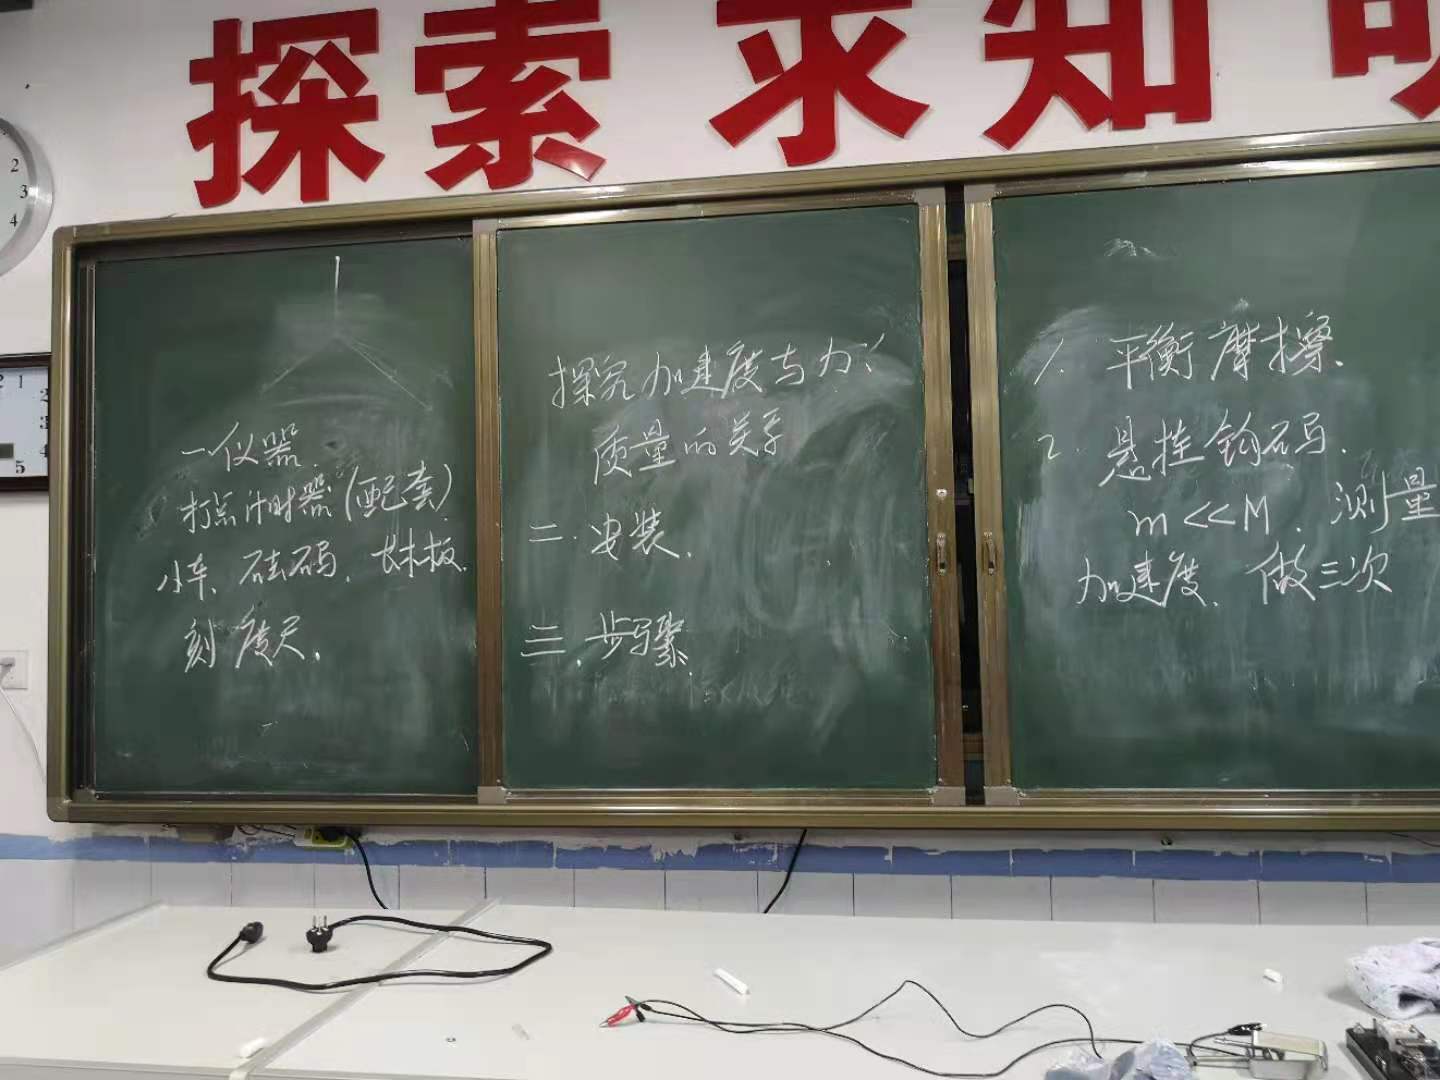 探索 求知 明
一 仪器.
打点计时器(配套)
小车、砝码、长木板.
刻度尺.
探究加速度与力、
质量的关系
二.安装.
三.步骤.
1. 平衡摩擦.
2. 悬挂钩码.
m<<M. 测量
加速度. 做三次
2
3
4
2 1
2
3
4
5